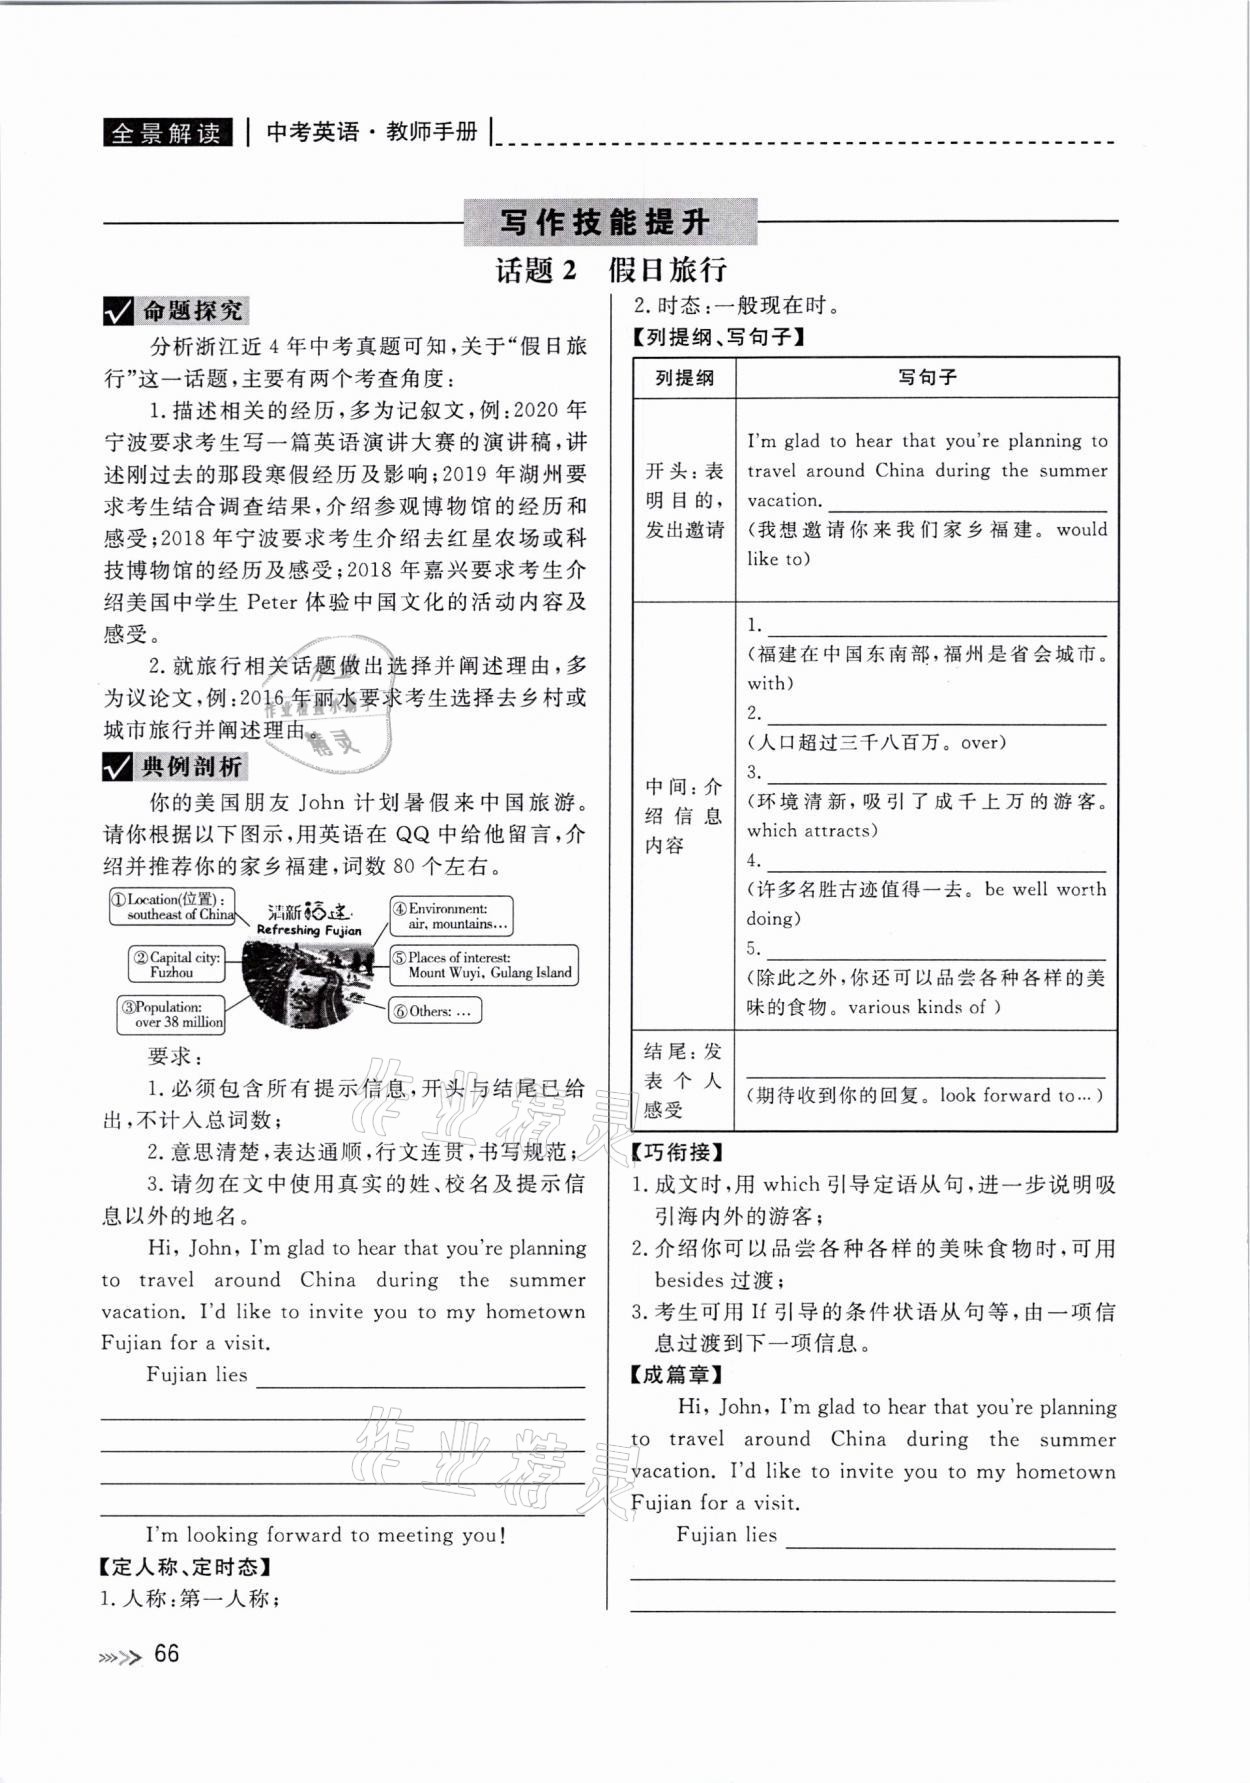 全景解读 中考英语·教师手册
写作技能提升
话题 2 假日旅行
命题探究
分析浙江近 4 年中考真题可知,关于“假日旅
行”这一话题,主要有两个考查角度:
1. 描述相关的经历,多为记叙文,例:2020 年
宁波要求考生写一篇英语演讲大赛的演讲稿,讲
述刚过去的那段寒假经历及影响;2019 年湖州要
求考生结合调查结果,介绍参观博物馆的经历和
感受;2018 年宁波要求考生介绍去红星农场或科
技博物馆的经历及感受;2018 年嘉兴要求考生介
绍美国中学生 Peter 体验中国文化的活动内容及
感受。
2. 就旅行相关话题做出选择并阐述理由,多
为议论文,例:2016 年丽水要求考生选择去乡村或
城市旅行并阐述理由。
典例剖析
你的美国朋友 John 计划暑假来中国旅游。
请你根据以下图示,用英语在 QQ 中给他留言,介
绍并推荐你的家乡福建,词数 80 个左右。
①Location(位置):
southeast of China
②Capital city:
Fuzhou
③Population:
over 38 million
清新福建
Refreshing Fujian
④Environment:
air, mountains...
⑤Places of interest:
Mount Wuyi, Gulang Island
⑥Others: ...
要求:
1. 必须包含所有提示信息,开头与结尾已给
出,不计入总词数;
2. 意思清楚,表达通顺,行文连贯,书写规范;
3. 请勿在文中使用真实的姓、校名及提示信
息以外的地名。
Hi, John, I'm glad to hear that you're planning
to travel around China during the summer
vacation. I'd like to invite you to my hometown
Fujian for a visit.
Fujian lies
I'm looking forward to meeting you!
【定人称、定时态】
1. 人称:第一人称;
2. 时态:一般现在时。
【列提纲、写句子】
列提纲 写句子
开头:表
明目的,
发出邀请
I'm glad to hear that you're planning to
travel around China during the summer
vacation.
(我想邀请你来我们家乡福建。would
like to)
中间:介
绍信息
内容
1.
(福建在中国东南部,福州是省会城市。
with)
2.
(人口超过三千八百万。over)
3.
(环境清新,吸引了成千上万的游客。
which attracts)
4.
(许多名胜古迹值得一去。be well worth
doing)
5.
(除此之外,你还可以品尝各种各样的美
味的食物。various kinds of )
结尾:发
表个人
感受
(期待收到你的回复。look forward to…)
【巧衔接】
1. 成文时,用 which 引导定语从句,进一步说明吸
引海内外的游客;
2. 介绍你可以品尝各种各样的美味食物时,可用
besides 过渡;
3. 考生可用 If 引导的条件状语从句等,由一项信
息过渡到下一项信息。
【成篇章】
Hi, John, I'm glad to hear that you're planning
to travel around China during the summer
vacation. I'd like to invite you to my hometown
Fujian for a visit.
Fujian lies
66
作业精灵
作业精灵